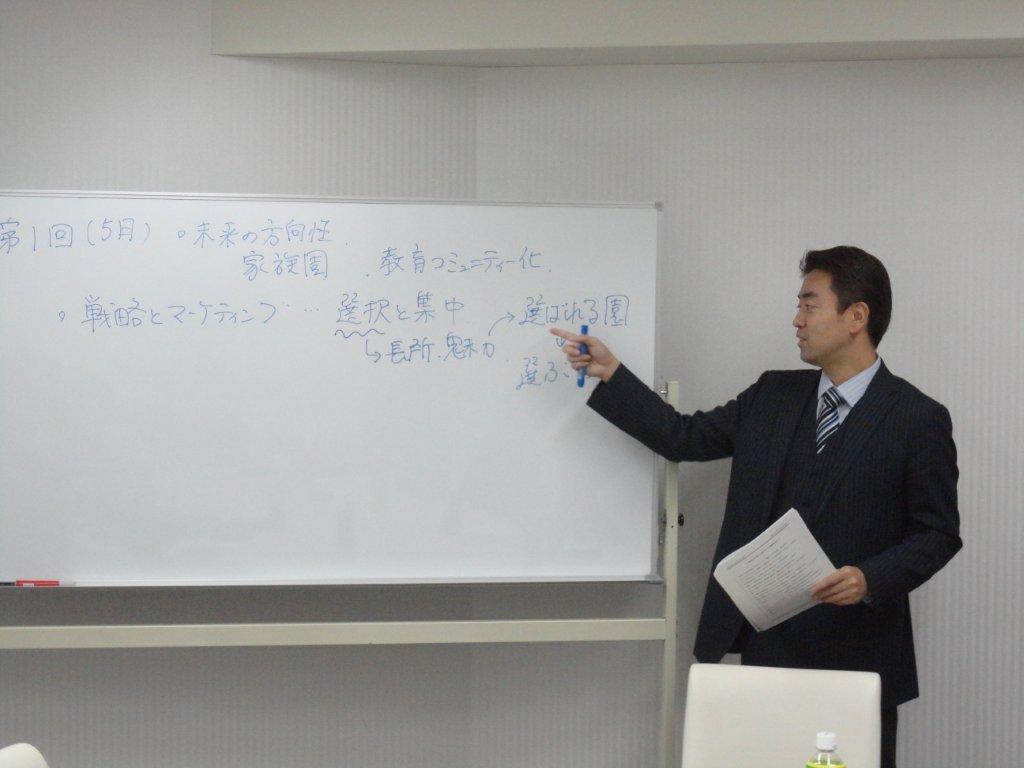 第1回(5月) 。未来の方向性
家族園 . 教育コミュニティー化.
。戦略とマーケティング … 選択と集中 → 選ばれる園
↳長所.魅力
選ぶ